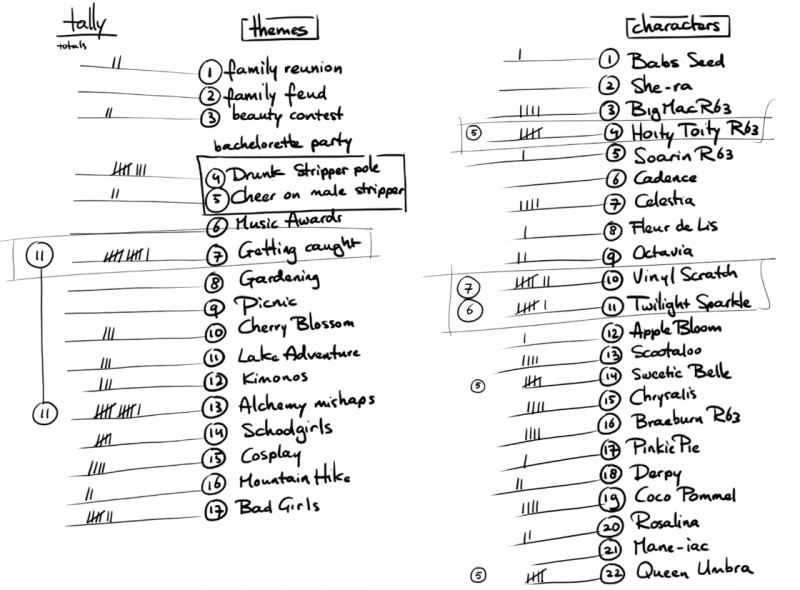 tally
totals
themes
1 family reunion
2 family feud
3 beauty contest
bachelorette party
4 Drunk stripper pole
5 Cheer on male stripper
6 Music Awards
11 7 Getting caught
8 Gardening
9 Picnic
10 Cherry Blossom
11 Lake Adventure
12 Kimonos
11 13 Alchemy mishaps
14 Schoolgirls
15 Cosplay
16 Mountain Hike
17 Bad Girls
characters
1 Babs Seed
2 She-ra
3 Big Mac R63
5 4 Hoity Toity R63
5 Soarin R63
6 Cadence
7 Celestia
8 Fleur de Lis
9 Octavia
7 10 Vinyl Scratch
6 11 Twilight Sparkle
12 Apple Bloom
13 Scootaloo
5 14 Sweetie Belle
15 Chrysalis
16 Braeburn R63
17 Pinkie Pie
18 Derpy
19 Coco Pommel
20 Rosalina
21 Mane-iac
5 22 Queen Umbra